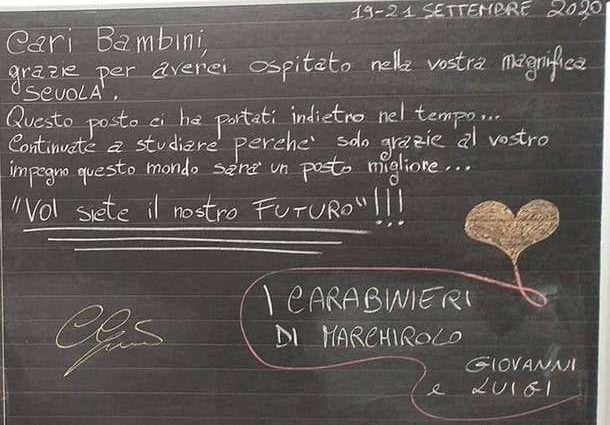 19-21 SETTEMBRE 2020
Cari Bambini,
grazie per averci ospitato nella vostra magnifica
SCUOLA.
Questo posto ci ha portati indietro nel tempo...
Continuate a studiare perche' solo grazie al vostro
impegno questo mondo sara' un posto migliore...
"VOI siete il nostro FUTURO"!!!
I CARABINIERI
DI MARCHIROLO
GIOVANNI
e LUIGI